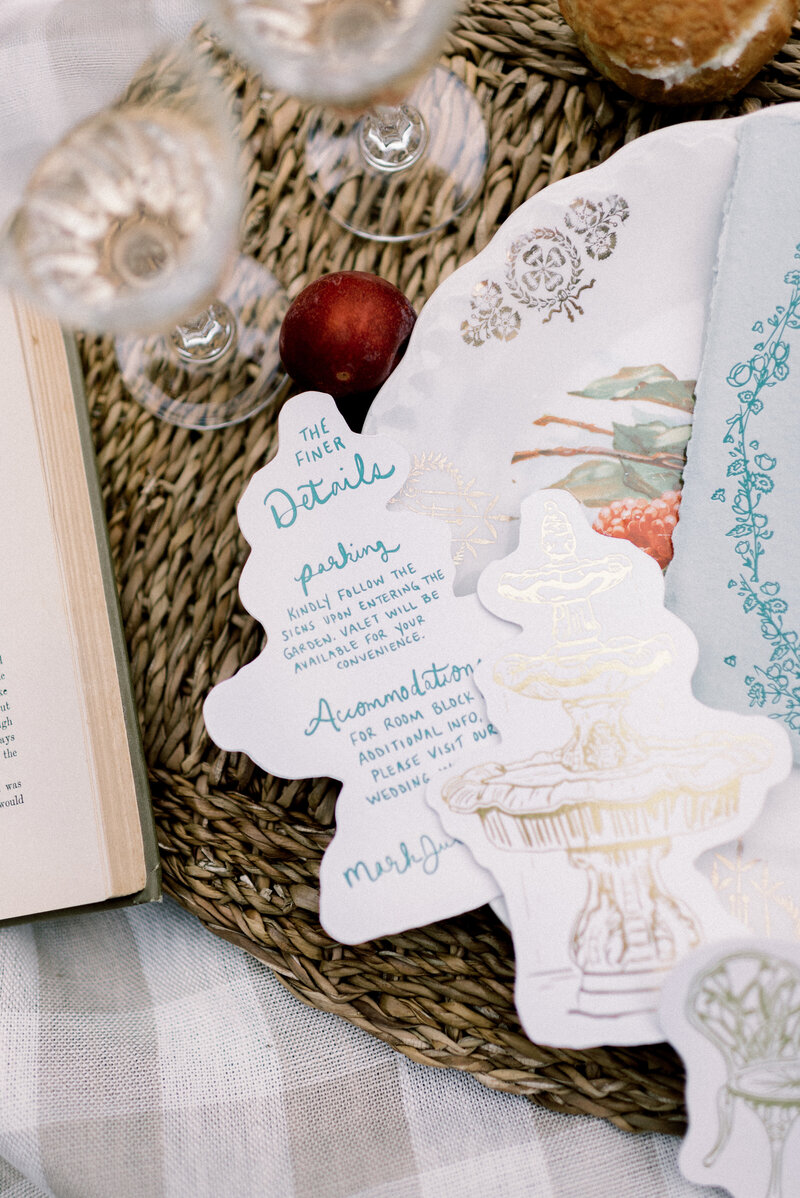 THE
FINER
Details
parking
KINDLY FOLLOW THE
SIGNS UPON ENTERING THE
GARDEN. VALET WILL BE
AVAILABLE FOR YOUR
CONVENIENCE.
Accommodation
FOR ROOM BLOCK
ADDITIONAL INFO,
PLEASE VISIT OUR
WEDDING ...
MarkJu
ays
the
was
would